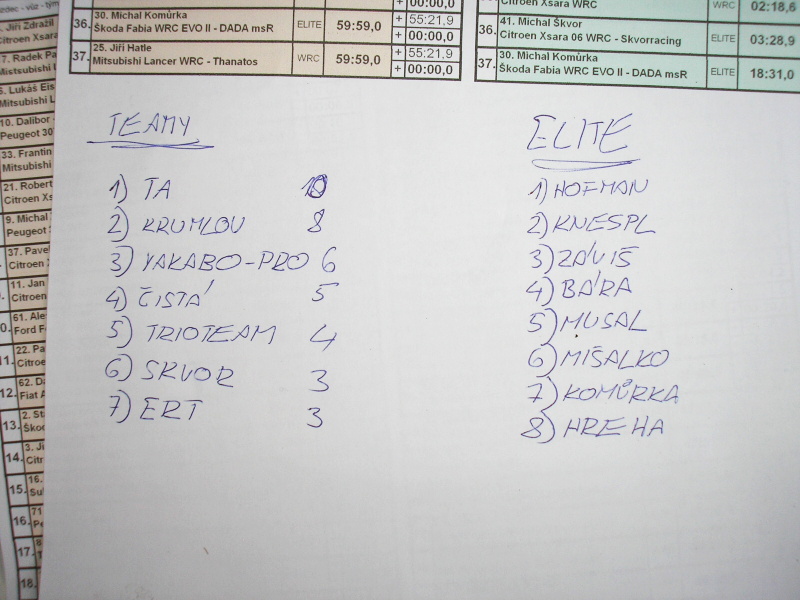 30. Michal Komůrka
36. Škoda Fabia WRC EVO II - DADA msR ELITE 59:59,0 + 55:21,9
+ 00:00,0
25. Jiří Hatle
37. Mitsubishi Lancer WRC - Thanatos WRC 59:59,0 + 55:21,9
+ 00:00,0
Citroen Xsara WRC WRC 02:18,6
41. Michal Škvor
36. Citroen Xsara 06 WRC - Skvorracing ELITE 03:28,9
30. Michal Komůrka
37. Škoda Fabia WRC EVO II - DADA msR ELITE 18:31,0
Jiří Zdražil
Citroen Xsara
7. Radek Pa
Mitsubishi
Lukáš Eis
Mitsubishi L
10. Dalibor
Peugeot 30
33. Frantin
Mitsubishi
21. Robert
Citroen Xs
9. Michal
Peugeot
37. Pave
Citroen
11. Jan
Citroen
61. Ale
Ford F
22. Pa
11. Citroe
62. D
12. Fiat A
2. St
13. Škoc
3. Ji
14. Citr
16.
15. Su
71
16. Pe
17.
18.
TEAMY
1) TA 10
2) KRUMLOV 8
3) YAKABO-PRO 6
4) ČISTÁ 5
5) TRIOTEAM 4
6) SKVOR 3
7) ERT 3
ELITE
1) HOFMAN
2) KNESPL
3) ZÁVIŠ
4) BÁRA
5) MUSAL
6) MIŠALKO
7) KOMŮRKA
8) HREHA